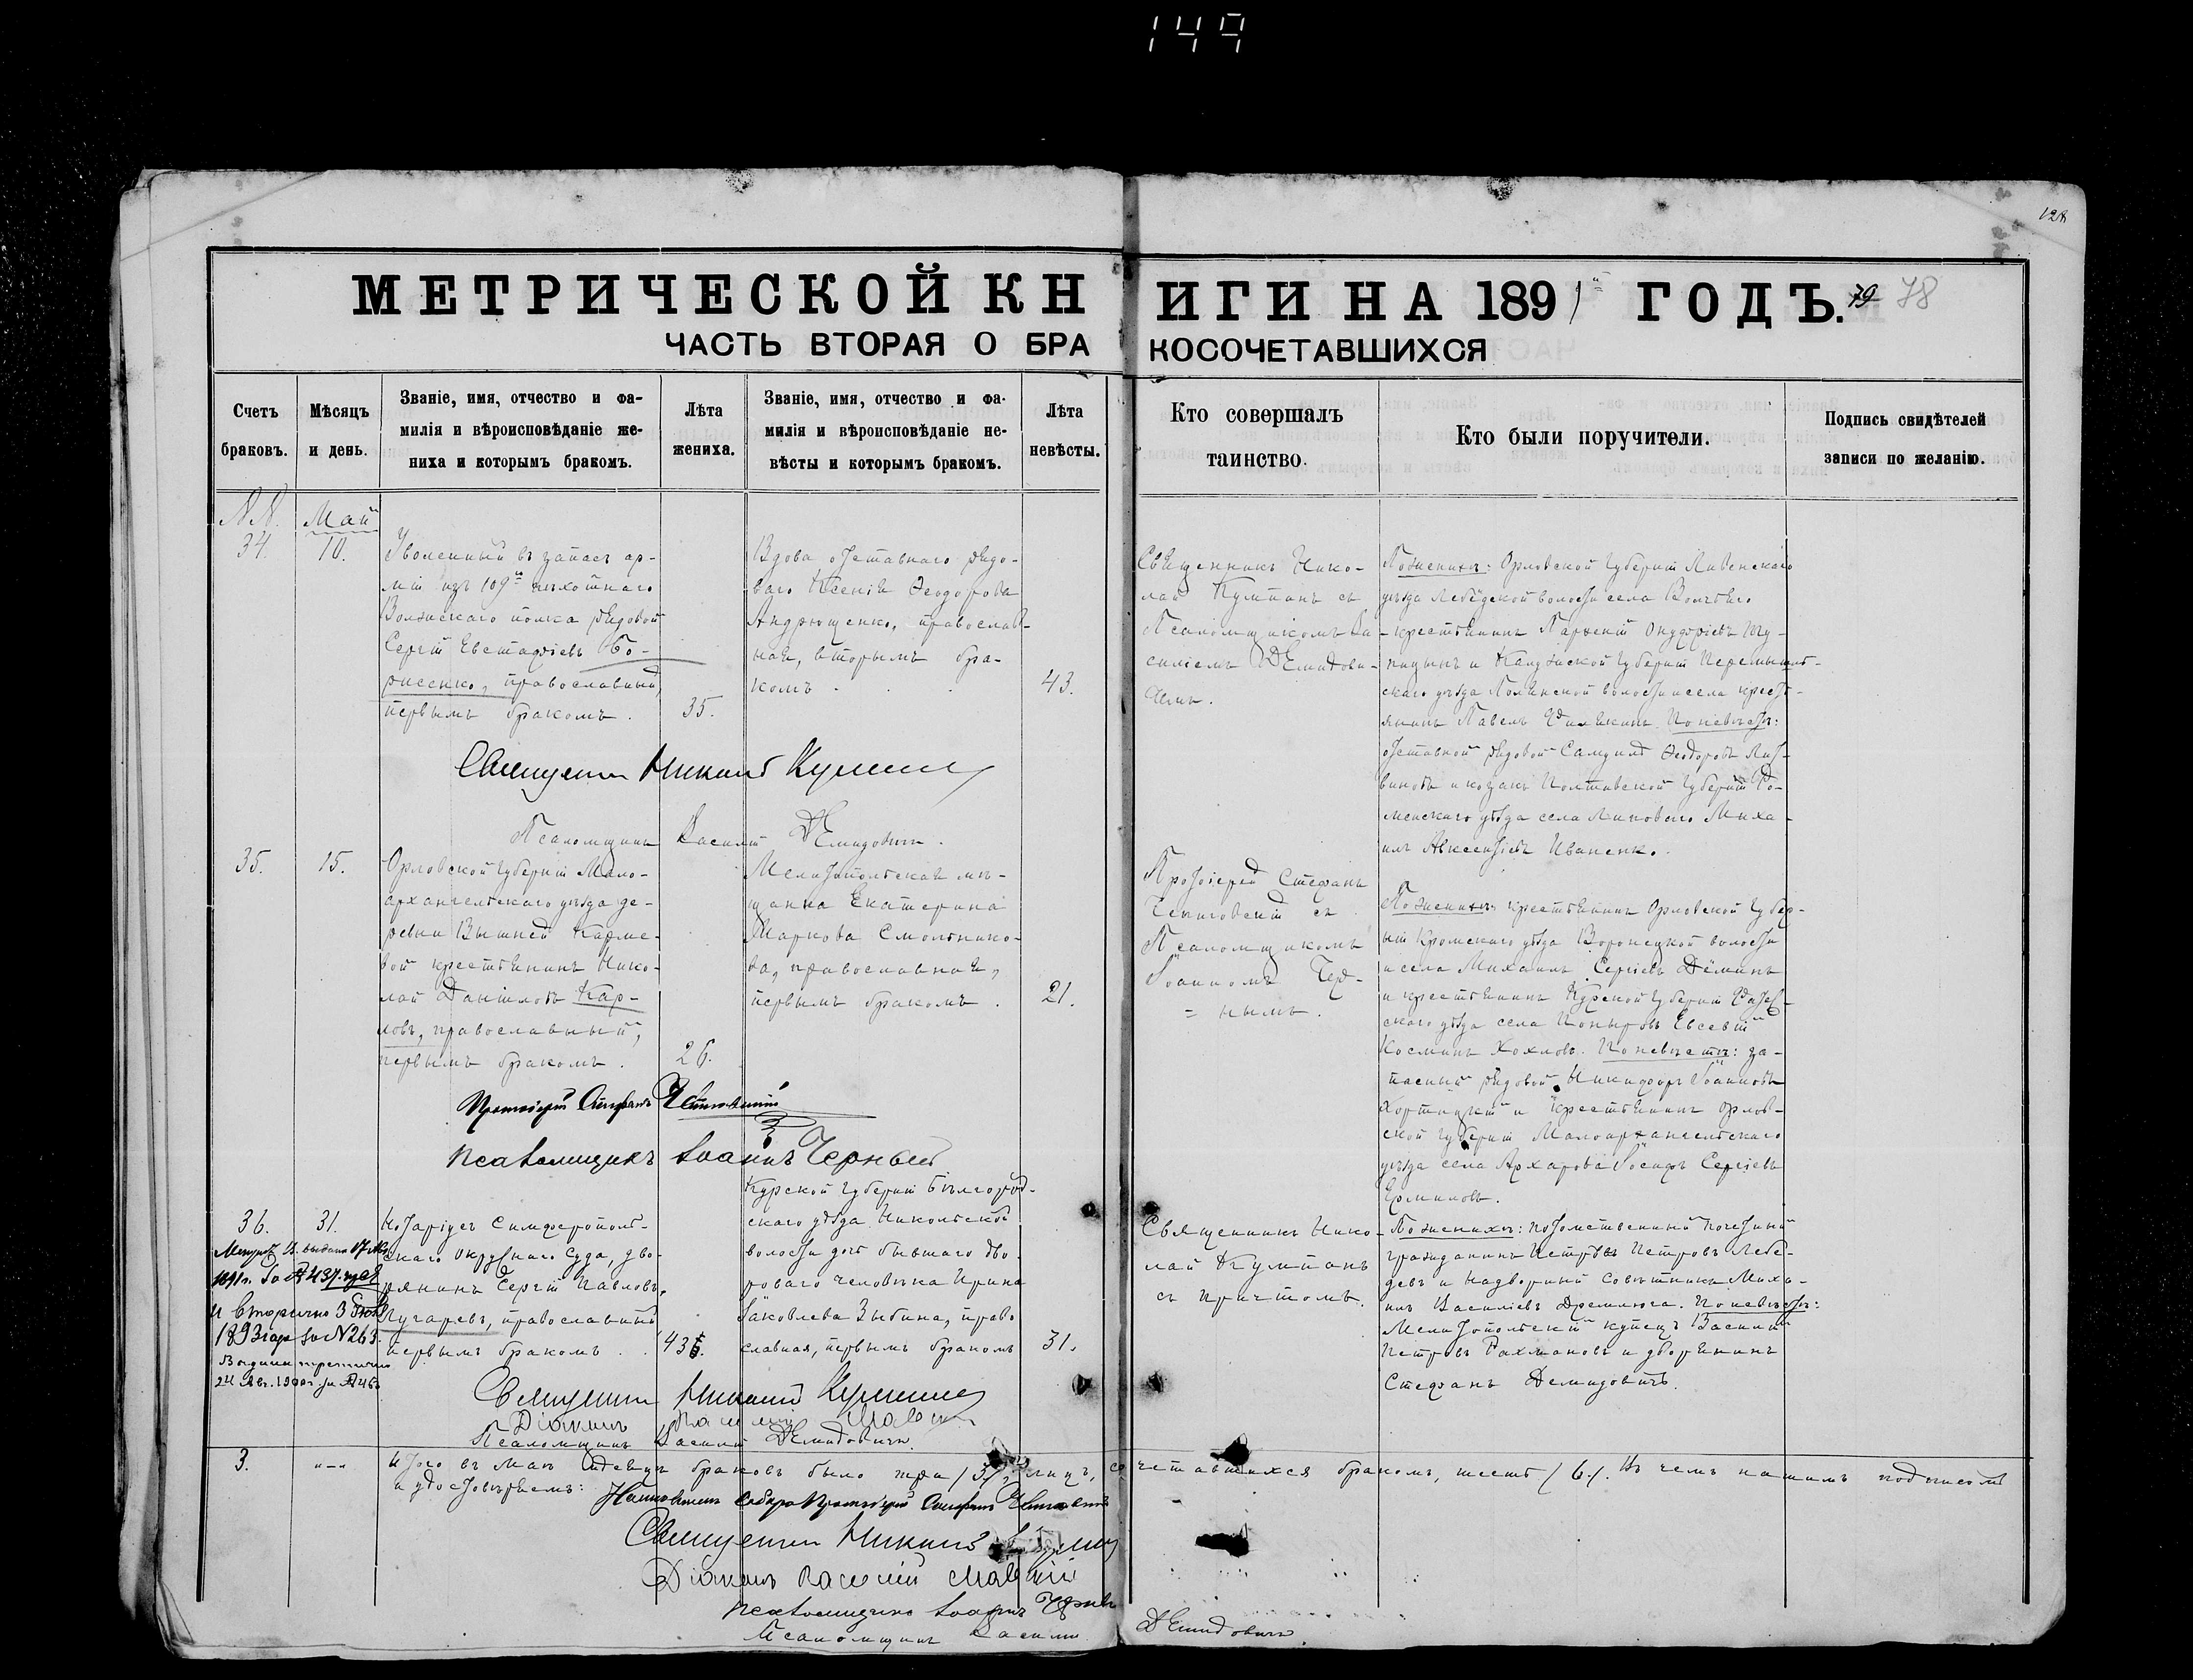 149
128
МЕТРИЧЕСКОЙ КНИГИ НА 1891 ГОДЪ. 79 78
ЧАСТЬ ВТОРАЯ О БРАКОСОЧЕТАВШИХСЯ
Счетъ браковъ.
Мѣсяцъ и день.
Званіе, имя, отчество и фа-
милія и вѣроисповѣданіе же-
ниха и которымъ бракомъ.
Лѣта жениха.
Званіе, имя, отчество и фа-
милія и вѣроисповѣданіе не-
вѣсты и которымъ бракомъ.
Лѣта невѣсты.
Кто совершалъ
таинство.
Кто были поручители.
Подпись свидѣтелей
записи по желанію.
NN.
Май
34.
10.
Уволенный въ запасъ ар-
міи изъ 109го пѣхотнаго
Волжскаго полка рядовой
Сергій Евстафіевъ Бо-
рисенко, православный,
первымъ бракомъ.
35.
Вдова отставнаго рядо-
ваго Ксенія Ѳеодорова
Андрющенко, православ-
ная, вторымъ бра-
комъ
43.
Священникъ Нико-
лай Кумпанъ съ
Псаломщикомъ Ва-
силіемъ Демидови-
чемъ.
По женихѣ: Орловской Губерніи Ливенскаго
уѣзда Лебёдской волости села Волчьяго
крестьянинъ Парѳеній Онуфріевъ
и Калужской Губерніи Перемышль-
скаго уѣзда волости и села кресть-
янинъ Павелъ По невѣстѣ:
отставной рядовой Самуилъ Ѳеодоровъ Лит-
виновъ и козакъ Полтавской Губерніи Ро-
менскаго уѣзда села Липоваго Миха-
илъ Авксентіевъ Иваненко.
Священникъ Николай Кумпанъ
Псаломщикъ Василій Демидовичъ.
35.
15.
Орловской Губерніи Мало-
архангельскаго уѣзда де-
ревни Вышней
крестьянинъ Нико-
лай Даніиловъ Кар-
повъ, православный,
первымъ бракомъ.
26.
Мелитопольская мѣ-
щанка Екатерина
Маркова Смольнико-
ва, православная,
первымъ бракомъ.
21.
Протоіерей Стефанъ
съ
Псаломщикомъ
Іоанномъ Чер-
= нымъ.
По женихѣ: крестьянинъ Орловской Губер-
ніи Кромскаго уѣзда Воронецкой волости
и села Михаилъ Сергіевъ Дёминъ
и крестьянинъ Курской Губерніи Фатеж-
скаго уѣзда села Поныровъ Евсевій
Косминъ Хохловъ. По невѣстѣ: за-
пасный рядовой Никифоръ Іоанновъ
Хортицкій и крестьянинъ Орлов-
ской Губерніи Малоархангельскаго
уѣзда села Архарова Іосифъ Сергіевъ
Ермиловъ.
Протоіерей Стефанъ
псаломщикъ Іоаннъ Черный
36.
31.
Нотаріусъ Симферополь-
скаго Окружнаго Суда, дво-
рянинъ Сергій Павловъ
Пугаревъ, православный
первымъ бракомъ
43.
Курской Губерніи Бѣлгород-
скаго уѣзда Никольской
волости дочь бывшаго дво-
роваго человѣка Ирина
Іаковлева Зыбина, право
славная, первымъ бракомъ
31.
Священникъ Нико-
лай Кумпанъ
съ причтомъ.
По женихѣ: потомственный почетный
гражданинъ Петръ Петровъ Лебе-
девъ и Надворный Совѣтникъ Миха-
илъ Василіевъ Дремлюга. По невѣстѣ:
Мелитопольскій купецъ Василій
Петровъ Рахмановъ и дворянинъ
Стефанъ Демидовичъ.
выдана 17
1891 г. за № 437.
и Вторично 3
1893 года за № 263.
24 1900 г. за №
Священникъ Николай Кумпанъ
Діаконъ Василій
Псаломщикъ Василій Демидовичъ.
3.
"—"
Итого въ Маѣ мѣсяцѣ браковъ было три /3/, лицъ, сочетавшихся бракомъ, шесть /6/. Въ чемъ нашимъ подписомъ
и удостовѣряемъ:
Настоятель Собора Протоіерей Стефанъ
Священникъ Николай Кумпанъ
Діаконъ Василій
псаломщикъ Іоаннъ Черный
Псаломщикъ Василій Демидовичъ.